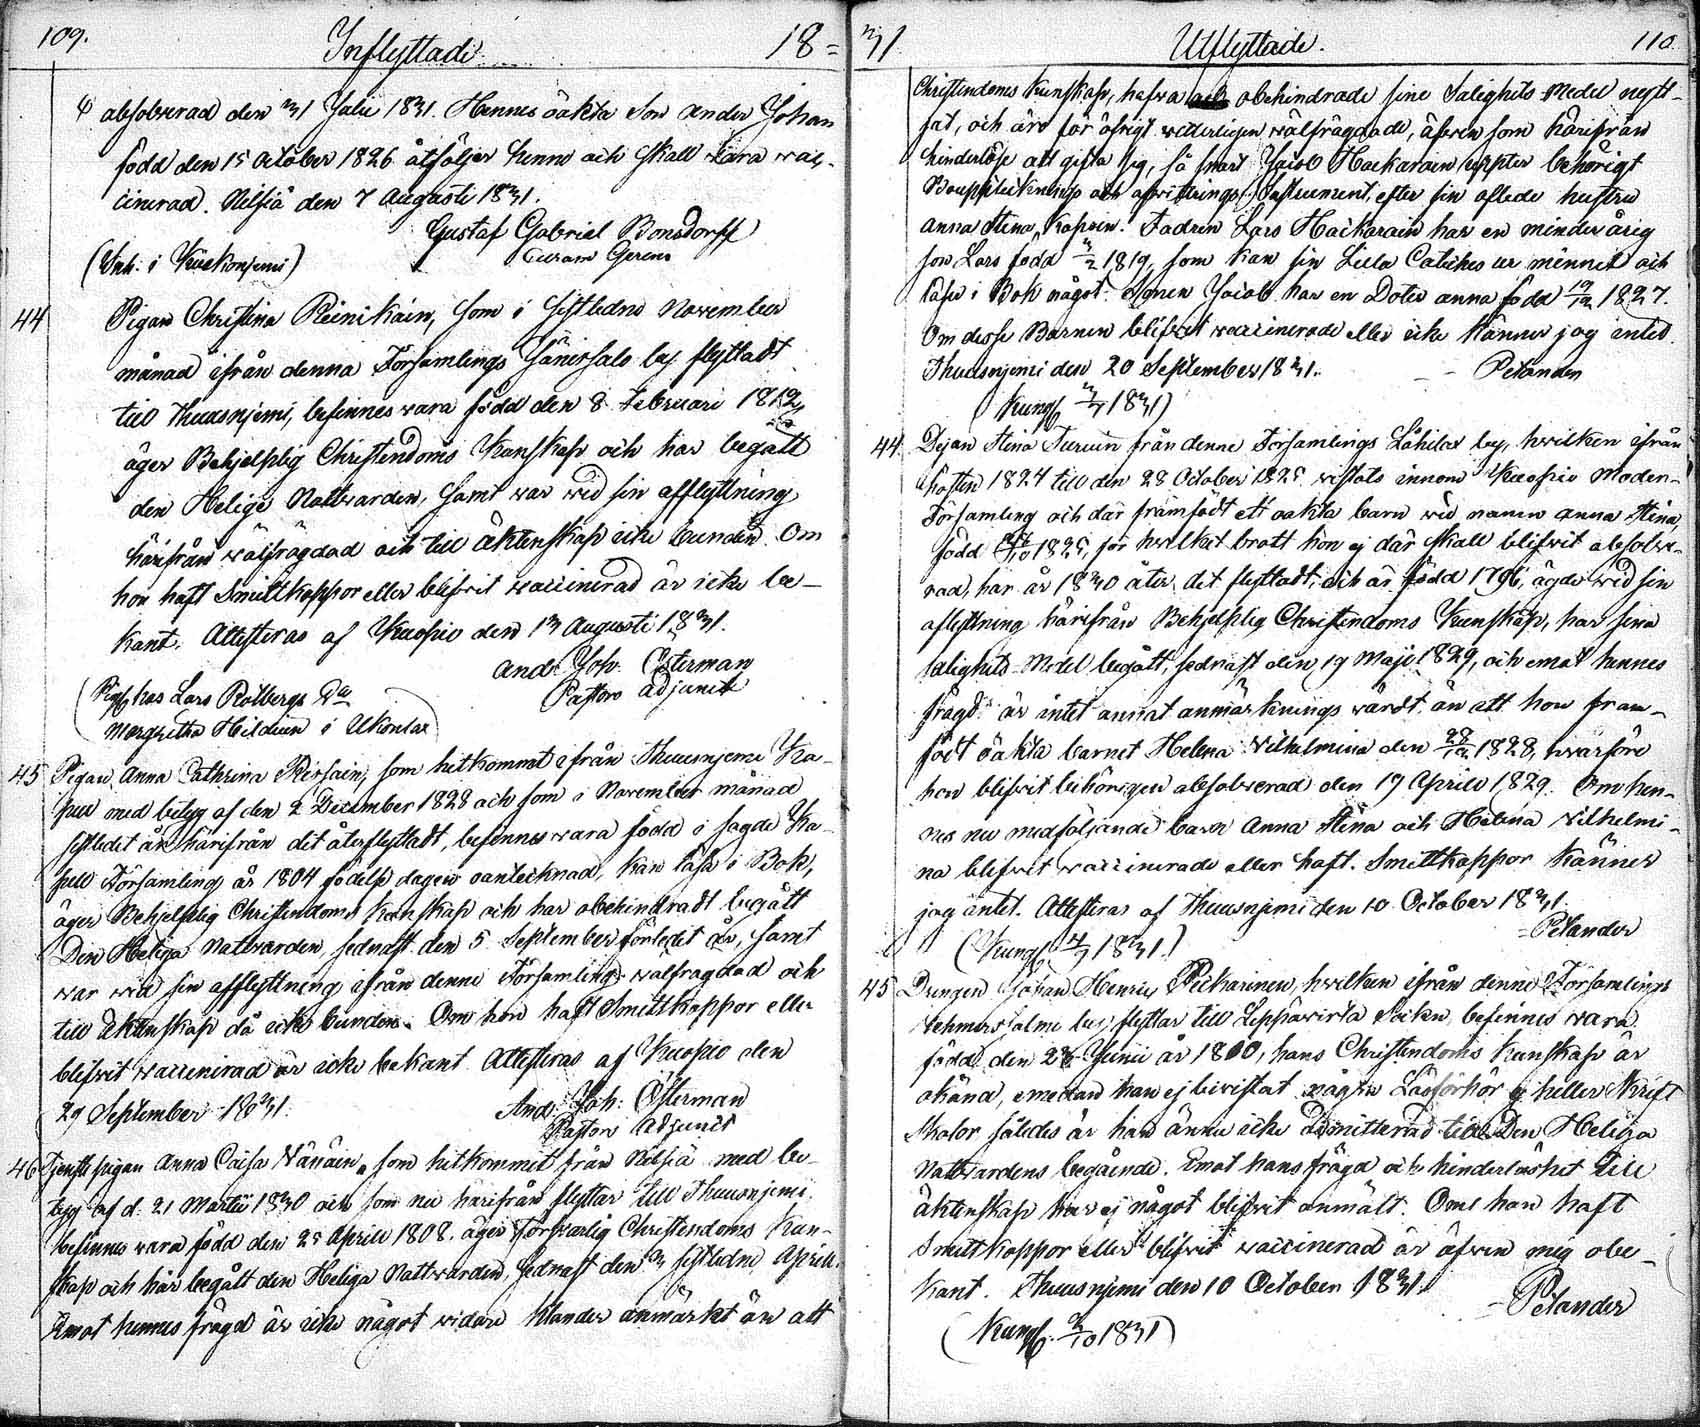 109.
Inflyttade
18=
absolverad den 31 Julii 1831. Hennes oäkta Son Anders Johan
född den 15 October 1826 åtföljer henne och skall vara vac-
cinerad. Nilsiä den 7 Augusti 1831.
Gustaf Gabriel Bonsdorff
Curam Gerens
(Inh: i Kuckonjemi)
44
Pigan Christina Reinikain, som i sistledne November
månad ifrån denna Församlings Jänissalo by flyttadt
till Thuusnjemi, befinnes vara född den 8 Februari 1812,
äger Behjelplig Christendoms Kunskap och har begått
den Helige Nattvarden, samt var vid sin afflyttning
härifrån välfrägdad och till äktenskap icke bunden. Om
hon haft Smittkoppor eller blifvit vaccinerad är icke be-
kant. Attesteras af Kuopio den 13 Augusti 1831.
And: Joh: Österman
Pastors Adjunct
hos Lars Rolbergs
Margretha Hildien i Ukonlax
45
Pigan Anna Cathrina Kersain, som hitkommet ifrån Thuusnjemi Ka-
pell med betyg af den 2 December 1828 och som i November månad
sistledet år härifrån dit återflyttadt, befinnes vara född i sagde Ka-
pell Församling år 1804 födelse dagen oantecknad, kan läsa i Bok,
äger Behjelplig Christendoms Kunskap och har obehindradt begått
Den Heliga Nattvarden, sednast den 5 September förledet år, samt
var vid sin afflyttning ifrån denne Församling välfrägdad och
till äktenskap då icke bunden. Om hon haft Smittkoppor eller
blifvit vaccinerad är icke bekant. Attesteras af Kuopio den
29 September 1831.
And: Joh: Österman
Pastors Adjunct
46
Tjenstepigan Anna Caisa Nänäin, som hitkommit från Nilsiä med be-
tyg af d. 21 Martii 1830 och som nu härifrån flyttar till Thuusnjemi,
befinnes vara född den 25 Aprill 1808, äger Försvarlig Christendoms Kun-
skap och har begått den Heliga Nattvarden, sednast den 3 sistledne Aprill.
Emot hennes frägd är icke något vidare klander anmärkt än att
31
Utflyttade.
110
Christendoms Kunskap, hafva obehindrade sine Salighets Medel nytt-
jat, och äro för öfrigt vitterligen välfrägdade, äfven som härifrån
hinderlöse att gifta sig, så snart Jacob Hackarain uppter behörigt
Bouppteckings och afvittrings Instrument, efter sin aflede hustru
Anna Stina Kapain. Fadren Lars Hackarain har en minderårig
son Lars född 1819, som kan sin Lilla Catches ur minnet och
läser i Bok något. Sonen Jacob har en Doter Anna född 19/12 1827.
Om desse Barnen blifvit vaccinerade eller icke känner jag intet.
Thuusnjemi den 20 September 1831.
Petander
1831)
44
Pejan Stina Turuin från denne Församlings Låhilax by, hvilken ifrån
hösten 1824 till den 28 October 1825 vistats innom Kuopio Moder-
Församling och där framfödt ett oäkta barn vid namn Anna Stina,
född 1825, för hvilket brott hon ej där skall blifvit absolve-
rad, har år 1830 åter dit flyttadt, och är född 1796, ägde vid sin
aflyttning härifrån Behjelplig Christendoms Kunskap, har sina
Salighets Medel begått, sednast den 19 Maji 1829, och emot hennes
frägd är intet annat anmärknings värdt än att hon fram-
födt oäkta barnet Helena Vilhelmina den 28/12 1828, hvarföre
hon blifvit behörigen absolverad den 17 Aprill 1829. Om hen-
nes nu medföljande barn Anna Stina och Helena Vilhelmi-
na blifvit vaccinerade eller haft Smittkoppor känner
jag intet. Attesteras af Thuusnjemi den 10 October 1831.
Petander
1831.)
45
Drengen Johan Henric Pekarinen, hvilken ifrån denne Församlings
Vehmersalmi by flyttar till Leppävirta Socken, befinnes vara
född den 26 Junii år 1800, hans Christendoms Kunskap är
okänd, emedan han ej bevistat någre Läsförhör ej heller Skrift
skolor således är han ännu icke admitterad till Den Heliga
Nattvardens begående. Emot hans frägd och hinderlöshet till
äktenskap har ej något blifvit anmält. Om han haft
Smittkoppor eller blifvit vaccinerad är äfven mig obe-
kant. Thuusnjemi den 10 October 1831.
Petander
1831)